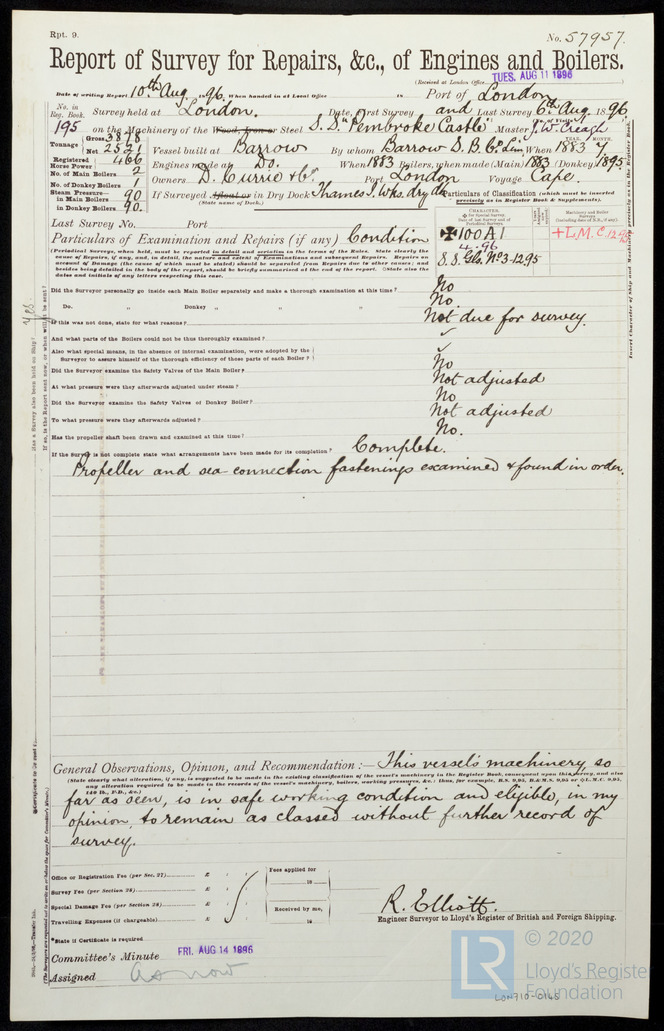 Rpt. 9.
No. 57957.
Report of Survey for Repairs, &c., of Engines and Boilers.
(Received at London Office TUES. AUG 11 1896
Date of writing Report 10th Aug 1896. When handed in at Local Office 18 Port of London
No. in Reg. Book. Survey held at London. Date, first Survey and Last Survey 6th Aug. 1896
195 on the Machinery of the Wood, Iron or Steel S.S. "Pembroke Castle" Master J.W. Creagh
Tonnage Gross 3878
Net 2521 Vessel built at Barrow By whom Barrow S.B. Co Lim When 1883 7
Registered Horse Power 466 Engines made at Do. When 1883 Boilers, when made (Main) 1883 (Donkey) 1895
No. of Main Boilers 2
No. of Donkey Boilers 1 Owners D. Currie & Co. Port London Voyage Cape.
Steam Pressure in Main Boilers 90 If Surveyed Afloat or in Dry Dock Thames I. Wks. dry dk
in Donkey Boilers 90. (State name of Dock.)
Particulars of Classification (which must be inserted precisely as in Register Book & Supplements).
Last Survey No. Port
Particulars of Examination and Repairs (if any) Condition
(Periodical Surveys, when held, must be reported in detail and seriatim in the terms of the Rules. State clearly the cause of Repairs, if any, and, in detail, the nature and extent of Examinations and subsequent Repairs. Repairs on account of Damage (the cause of which must be stated) should be separated from Repairs due to other causes; and besides being detailed in the body of the report, should be briefly summarised at the end of the report. State also the dates and initials of any letters respecting this case.
CHARACTER.
✠100A1
4.96
S.S. Glo. No3-12.95
Machinery and Boiler Surveys
+L.M.C. 12.95
Did the Surveyor personally go inside each Main Boiler separately and make a thorough examination at this time? No
Do. " Donkey " " " No.
If this was not done, state for what reasons? Not due for survey.
And what parts of the Boilers could not be thus thoroughly examined? ✓
Also what special means, in the absence of internal examination, were adopted by the
Surveyor to assure himself of the thorough efficiency of those parts of each Boiler? ✓
Did the Surveyor examine the Safety Valves of the Main Boiler? No
At what pressure were they afterwards adjusted under steam? Not adjusted
Did the Surveyor examine the Safety Valves of Donkey Boiler? No
To what pressure were they afterwards adjusted? Not adjusted
Has the propeller shaft been drawn and examined at this time? No.
If the Survey is not complete state what arrangements have been made for its completion? Complete.
Propeller and sea connection fastenings examined & found in order.
General Observations, Opinion, and Recommendation :— This vessel's machinery, so
(State clearly what alteration, if any, is suggested to be made in the existing classification of the vessel's machinery in the Register Book, consequent upon this survey, and also any alteration required to be made in the records of the vessel's machinery, boilers, working pressures, &c.; thus, for example, B.S. 9,95, B.&M.S. 9,95 or L.M.C. 9,95, 140 lb., F.D., &c.)
far as seen, is in safe working condition and eligible, in my
opinion, to remain as classed without further record of
survey.
Office or Registration Fee (per Sec. 27) £
Survey Fee (per Section 28) £
Special Damage Fee (per Section 28) £
Travelling Expenses (if chargeable) £
Fees applied for
18
Received by me,
18
R. Elliott.
Engineer Surveyor to Lloyd's Register of British and Foreign Shipping.
*State if Certificate is required
Committee's Minute FRI. AUG 14 1896
Assigned as now
LR © 2020
Lloyd's Register
Foundation
LON710-0145